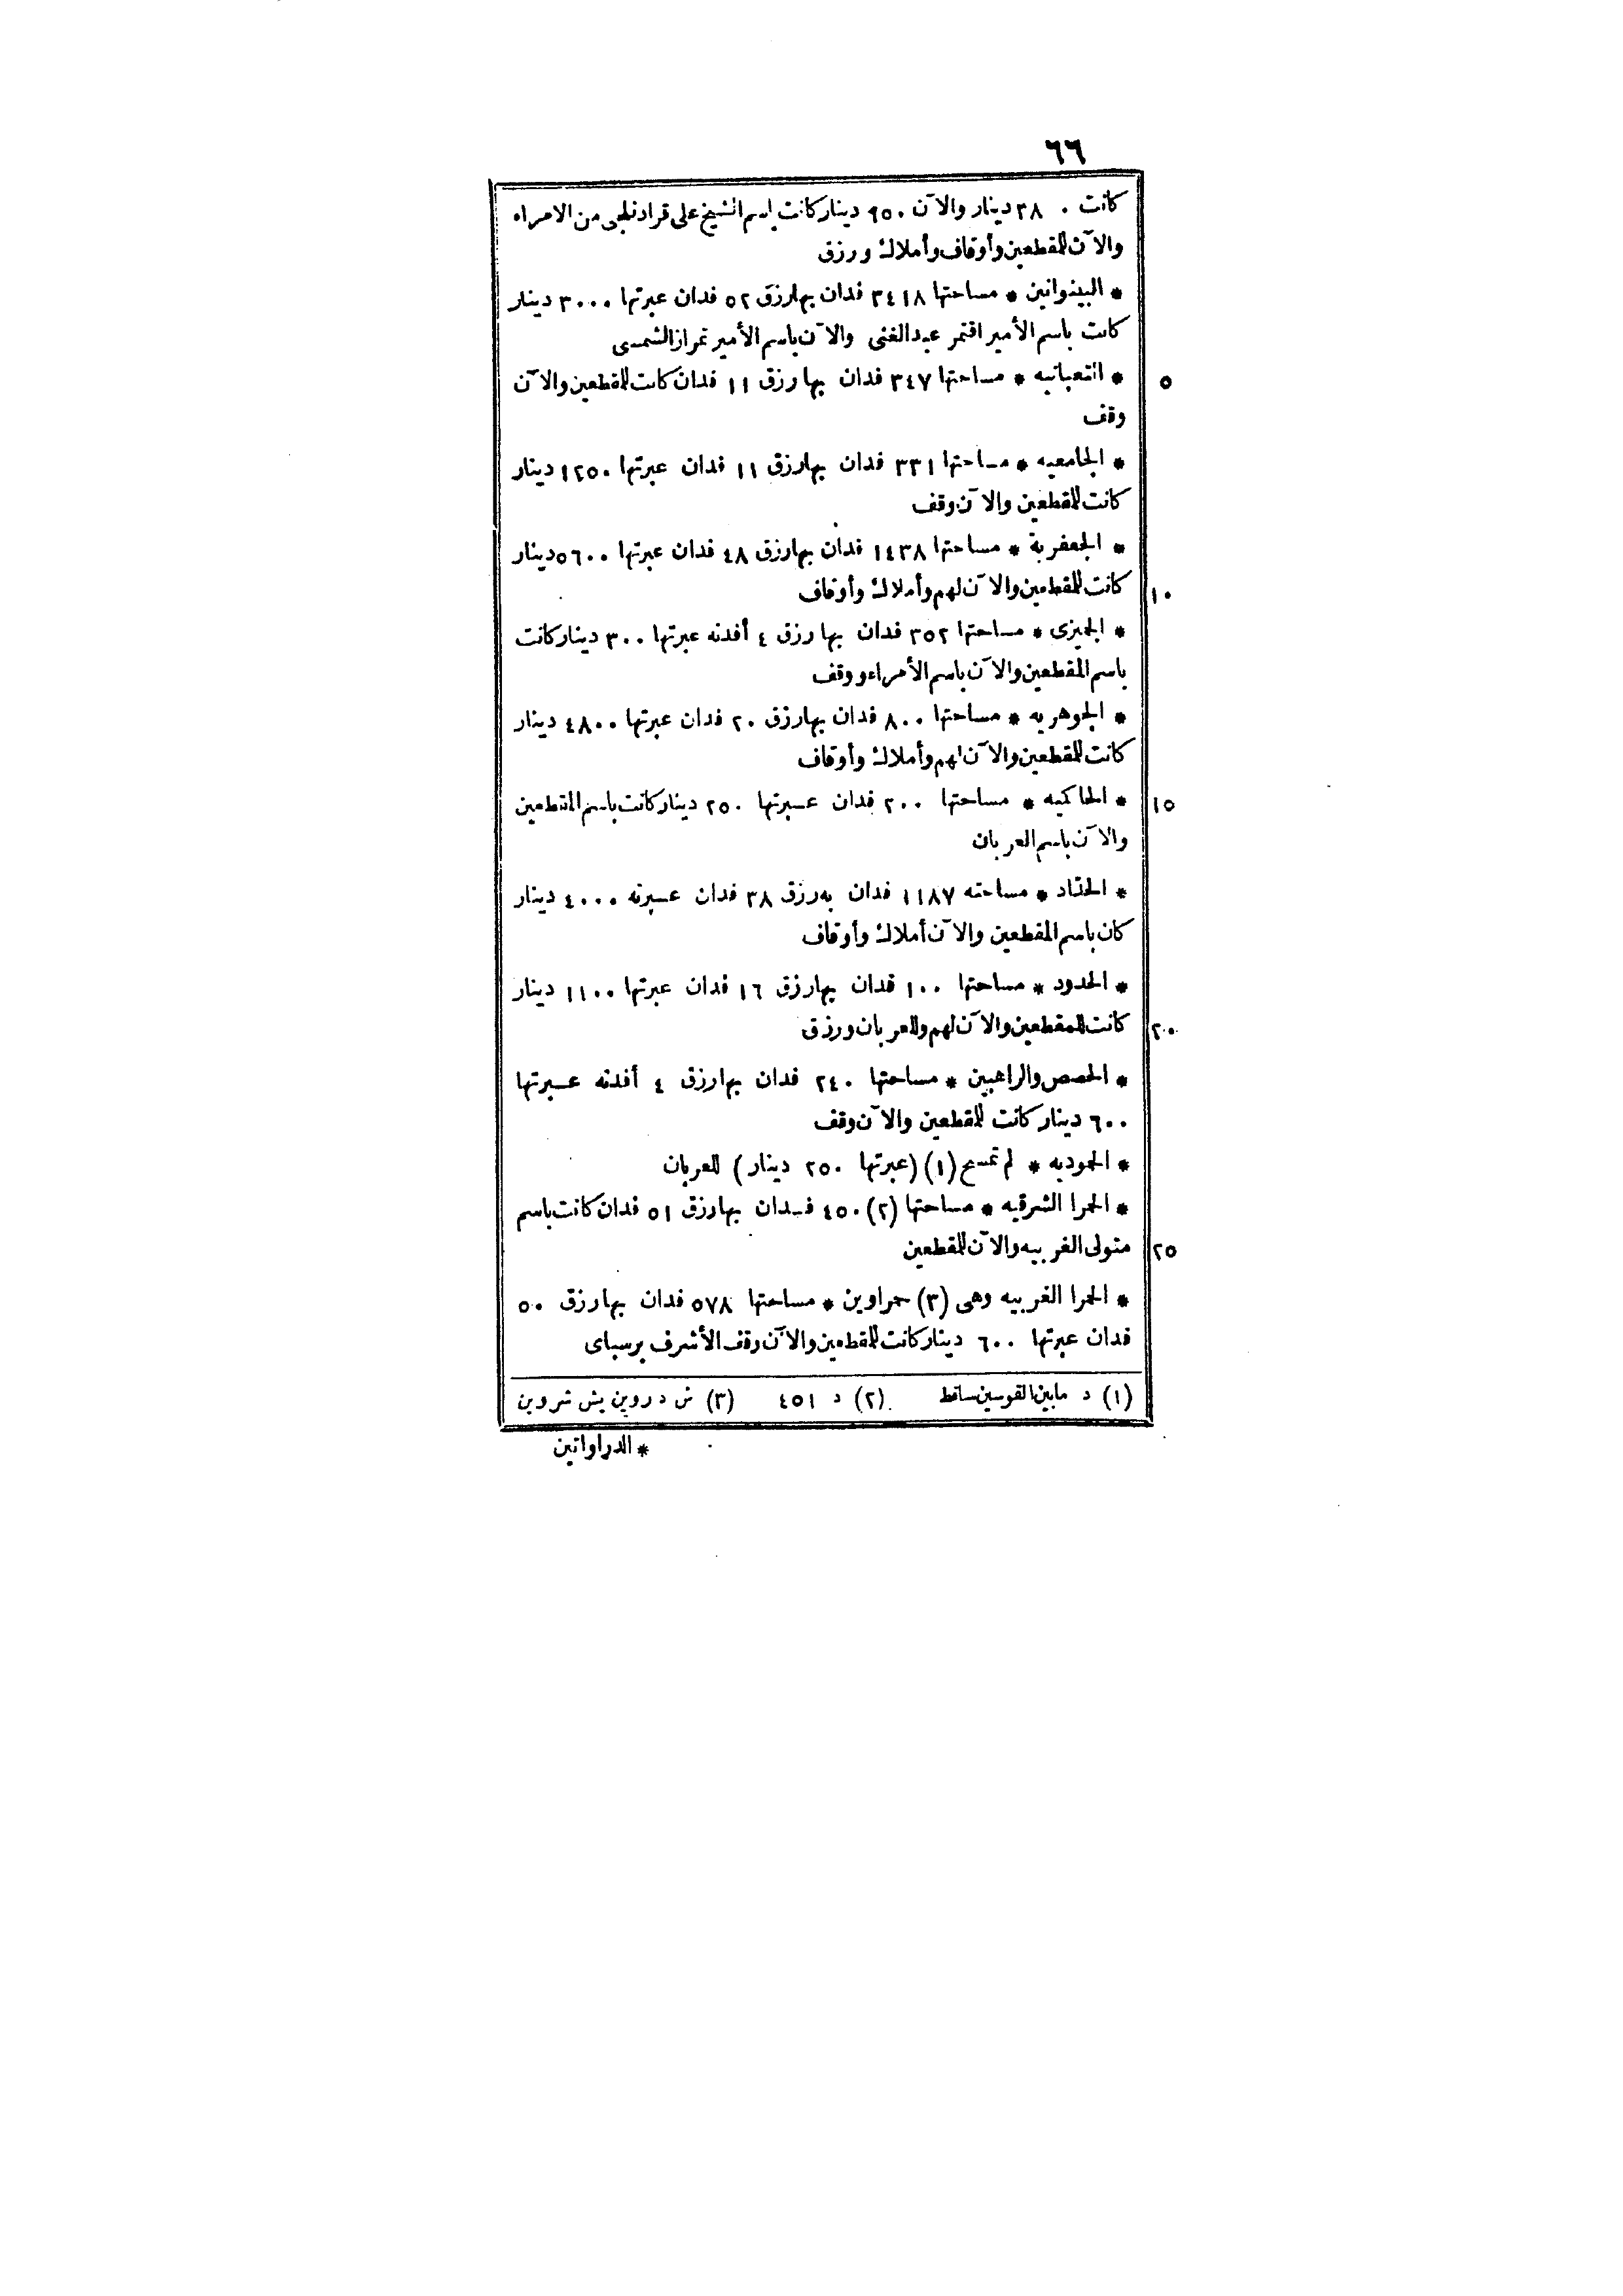 ٦٦
كانت ٣٨٠ دينار والآن ٩٥٠ دينار كانت باسم الشيخ على قرادنلجى من الامراء
والآن للمقطعين وأوقاف وأملاك ورزق
* البينوانين * مساحتها ٣٤١٨ فدان بها رزق ٥٢ فدان عبرتها ٣٠٠٠ دينار
كانت باسم الأمير اقتمر عبد الغنى والآن باسم الأمير تمراز الشمسى
٥ * التعبانيه * مساحتها ٣٤٧ فدان بها رزق ١١ فدان كانت للمقطعين والآن
وقف
* الجامعيه * مساحتها ٣٣١ فدان بها رزق ١١ فدان عبرتها ١٢٥٠ دينار
كانت للمقطعين والآن وقف
* الجعفرية * مساحتها ١٤٣٨ فدان بها رزق ٤٨ فدان عبرتها ٥٦٠٠ دينار
١٠ كانت للمقطعين والآن لهم وأملاك وأوقاف
* الجميزى * مساحتها ٣٥٢ فدان بها رزق ٤ أفدنه عبرتها ٣٠٠ دينار كانت
باسم المقطعين والآن باسم الأمراء ووقف
* الجوهريه * مساحتها ٨٠٠ فدان بها رزق ٢٠ فدان عبرتها ٤٨٠٠ دينار
كانت للمقطعين والآن لهم وأملاك وأوقاف
١٥ * الحاكميه * مساحتها ٢٠٠ فدان عبرتها ٢٥٠ دينار كانت باسم المقطعين
والآن باسم العربان
* الحداد * مساحته ١١٨٧ فدان به رزق ٣٨ فدان عبرته ٤٠٠٠ دينار
كان باسم المقطعين والآن أملاك وأوقاف
* الحدود * مساحتها ١٠٠ فدان بها رزق ١٦ فدان عبرتها ١١٠٠ دينار
٢٠ كانت للمقطعين والآن لهم وللعربان ورزق
* الحصص والراهبين * مساحتها ٢٤٠ فدان بها رزق ٤ أفدنه عبرتها
٦٠٠ دينار كانت للمقطعين والآن وقف
* الحموديه * لم تمسح (١) (عبرتها ٢٥٠ دينار) للعربان
* الحمرا الشرقيه * مساحتها (٢) ٤٥٠ فدان بها رزق ٥١ فدان كانت باسم
٢٥ متولى الغربيه والآن للمقطعين
* الحمرا الغربيه وهى (٣) حمراوين * مساحتها ٥٧٨ فدان بها رزق ٥٠
فدان عبرتها ٦٠٠ دينار كانت للمقطعين والآن وقف الأشرف برسباى
(١) د مابين القوسين ساقط (٢) د ٤٥١ (٣) ش دروين بش شروين
* الدراواتين